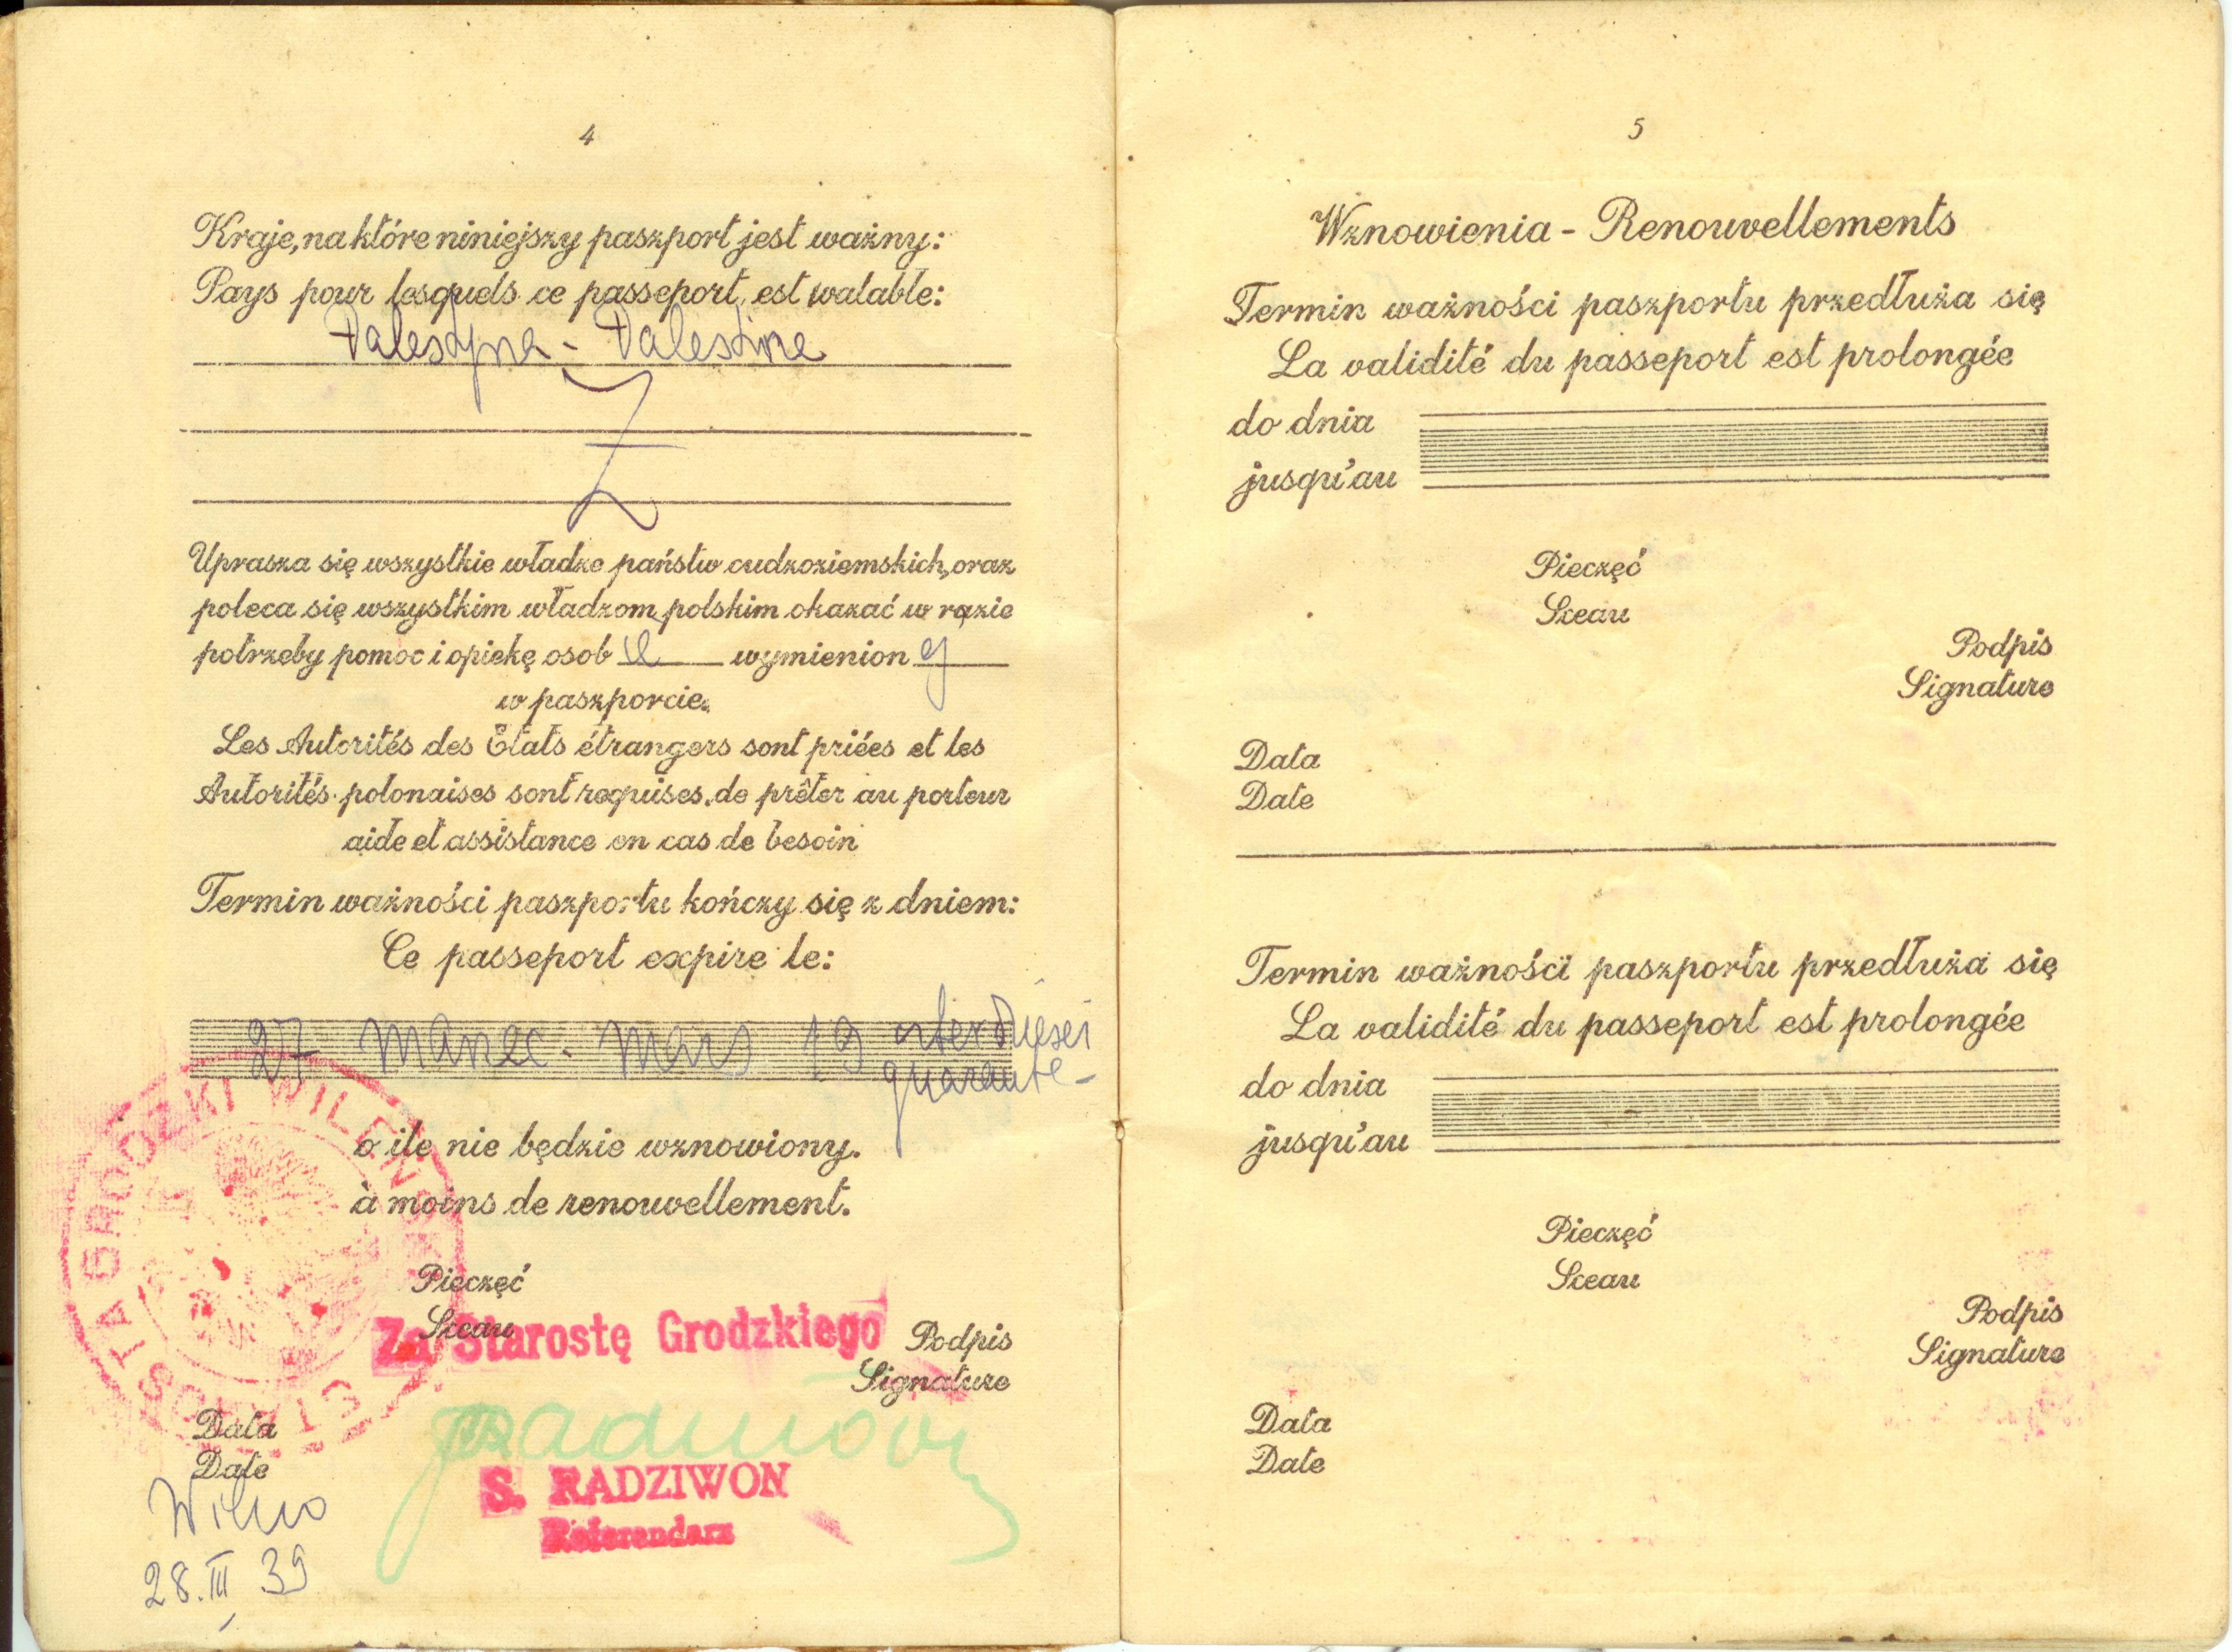 4
Kraje, na które niniejszy paszport jest ważny:
Pays pour lesquels ce passeport est walable:
Palestyna - Palestine
Uprasza się wszystkie władze państw cudzoziemskich, oraz
poleca się wszystkim władzom polskim okazać w razie
potrzeby pomoc i opiekę osob ie wymienion ej
w paszporcie.
Les Autorités des Etats étrangers sont priées et les
Autorités polonaises sont requises, de prêter au porteur
aide et assistance en cas de besoin
Termin ważności paszportu kończy się z dniem:
Ce passeport expire le:
27 marzec - mars 19 czterdzieści
quarante -
o ile nie będzie wznowiony.
à moins de renouvellement.
STAROSTA GRODZKI WILEŃSKI
Pieczęć
Sceau
Za Starostę Grodzkiego
Podpis
Signature
Data
Date
S. RADZIWON
Referendarz
Wilno
28.III 39
5
Wznowienia - Renouvellements
Termin ważności paszportu przedłuża się
La validité du passeport est prolongée
do dnia
jusqu'au
Pieczęć
Sceau
Podpis
Signature
Data
Date
Termin ważności paszportu przedłuża się
La validité du passeport est prolongée
do dnia
jusqu'au
Pieczęć
Sceau
Podpis
Signature
Data
Date